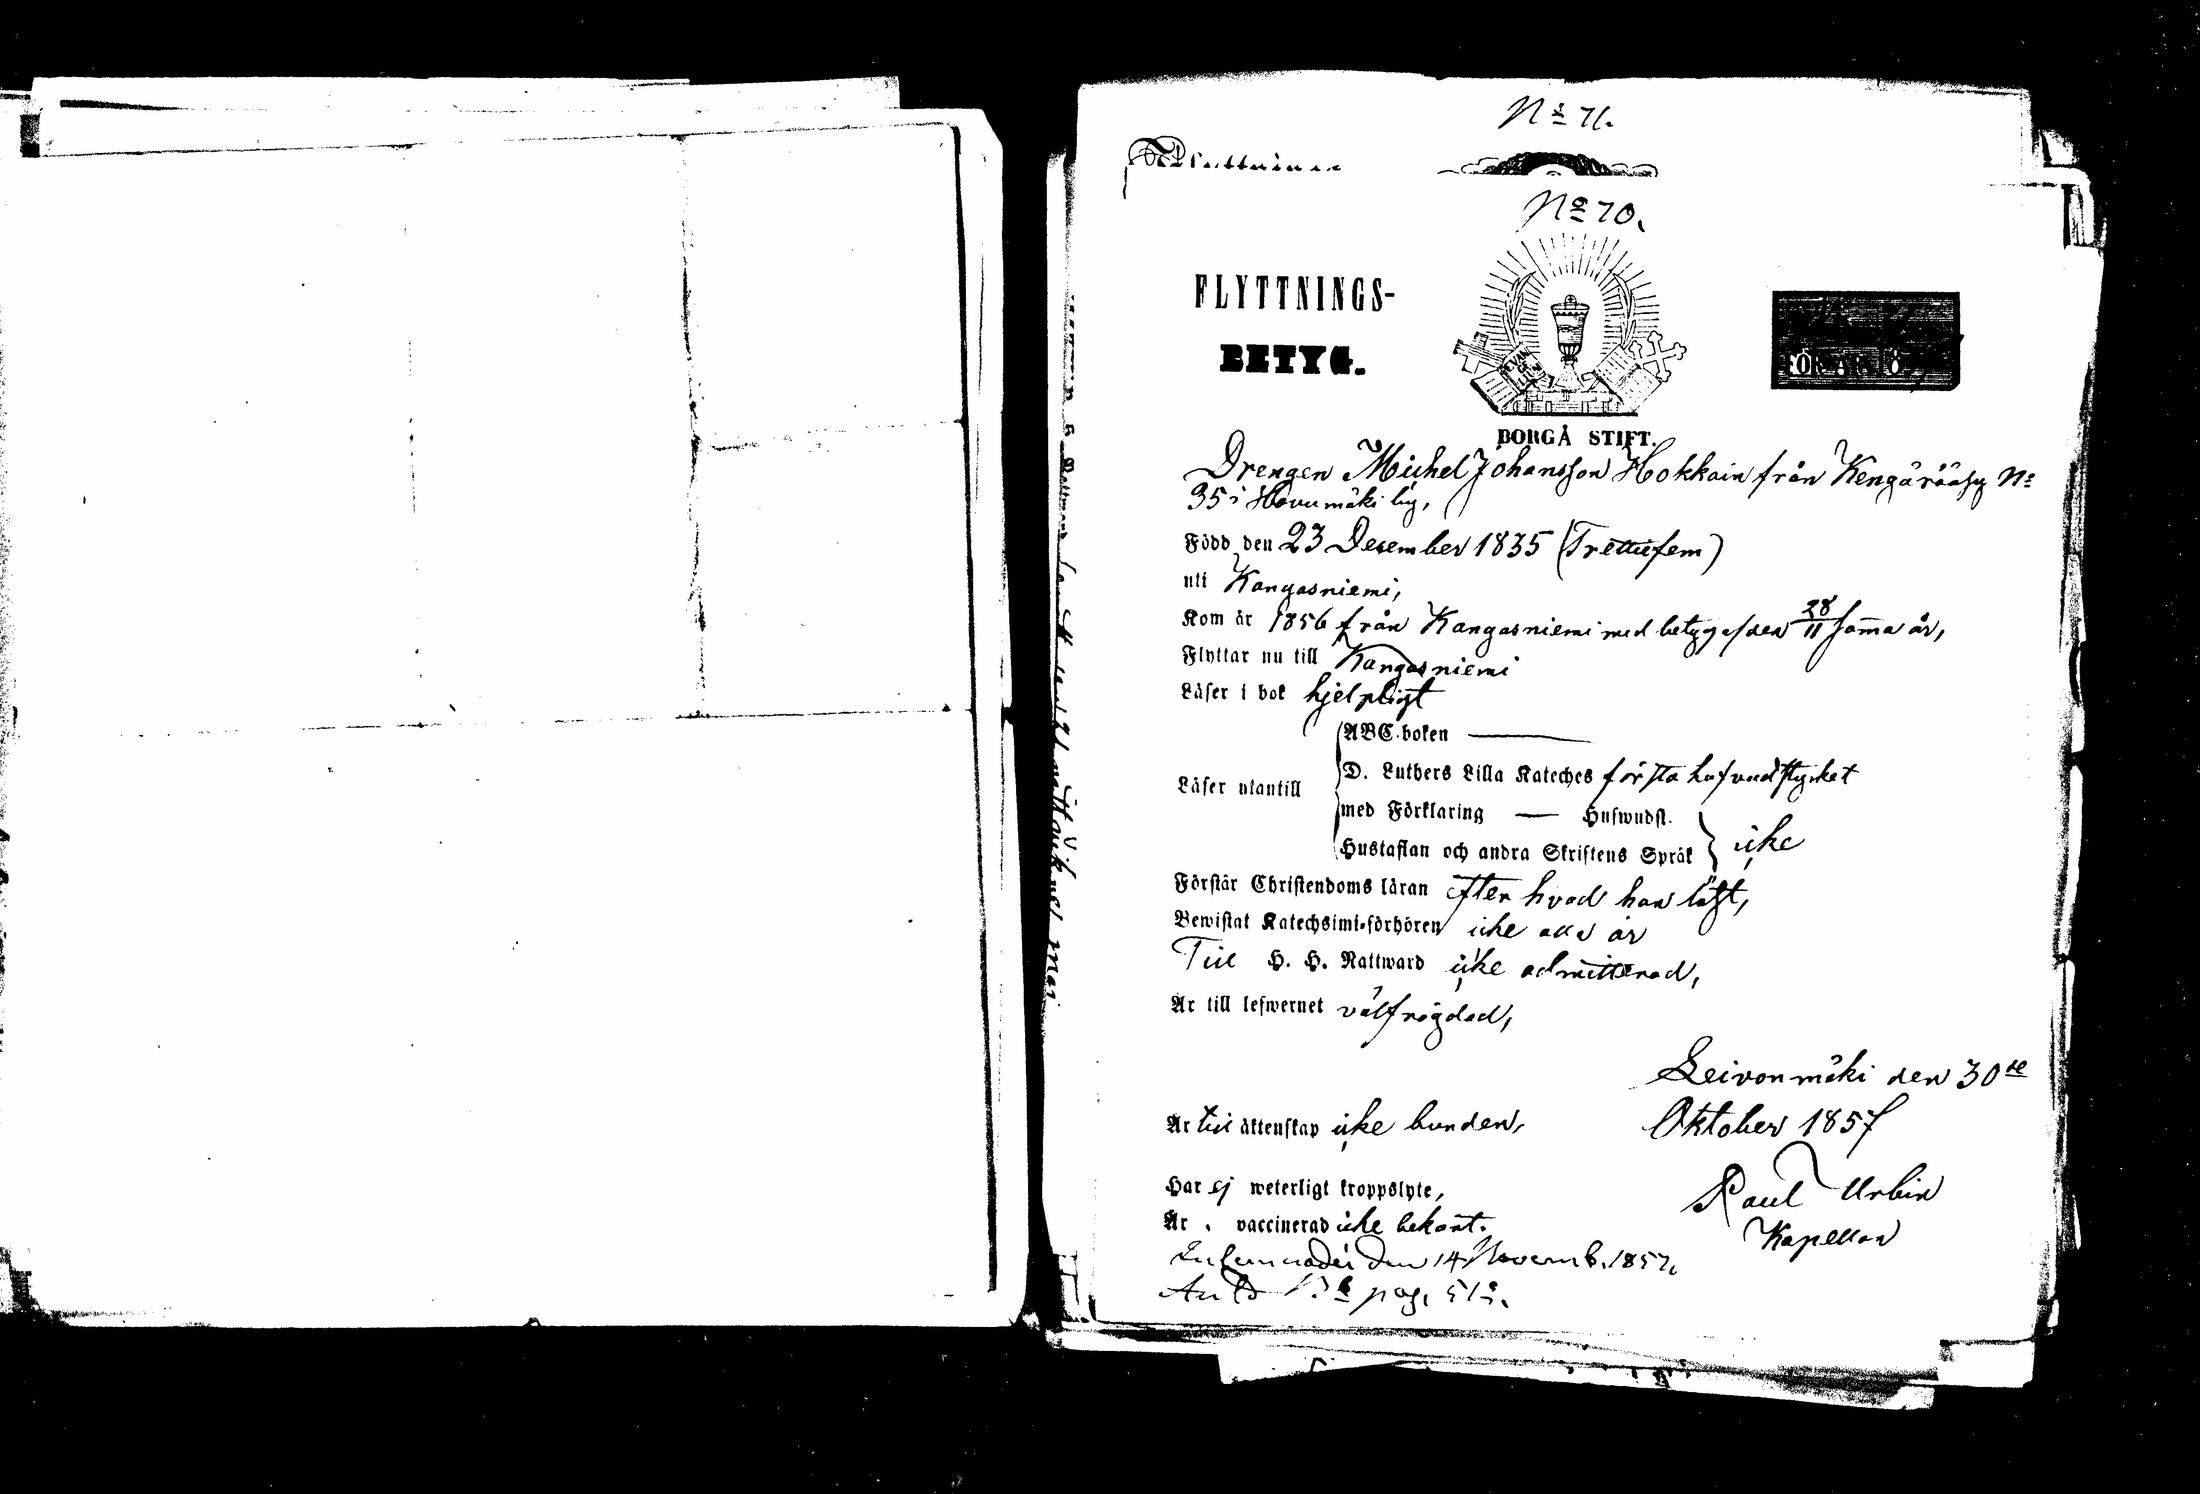 No 71.
No 70.
FLYTTNINGS-
BETYG.
EVAN GE LIUM
FÖR ÅR 18
BORGÅ STIFT.
Drengen Michel Johansson Hokkain från Kengäråäsy No
35 i Havumäki by,
Född den 23 December 1835 (Trettiefem)
uti Kangasniemi,
Kom år 1856 från Kangasniemi med betyg af den 28/11 samma år,
Flyttar nu till Kangasniemi
Läser i bok hjelpligt
ABC-boken —
D. Luthers Lilla Kateches första hufvudstycket
Läser utantill
med Förklaring — Hufwudst.
Hustaflan och andra Skriftens Språk icke
Förstår Christendoms läran efter hvad han läst,
Bewistat Katechsimi-förhören icke alla år
Till H. H. Nattward icke admitterad,
Är till lefwernet välfrägdad,
Leivonmäki den 30de
Är till äktenskap icke bunden,
Oktober 1857
Har ej weterligt kroppslyte,
Paul Urbin
Är vaccinerad icke bekant.
Kapellan
den 14 Novemb. 1857,
pag.